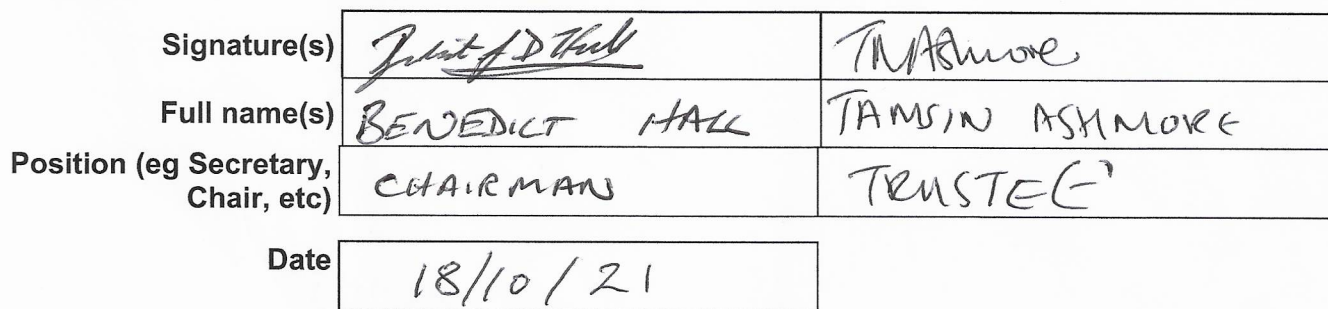 Signature(s) TMAshmore
Full name(s) BENEDICT HALL TAMSIN ASHMORE
Position (eg Secretary,
Chair, etc) CHAIRMAN TRUSTEE
Date 18/10/21